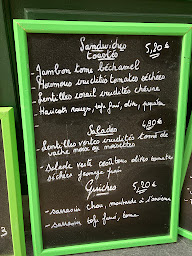 Sandwiches
toastés 5,80 €
Jambon tome béchamel
Houmous crudités tomates séchées
Lentilles corail crudités chèvre
Haricots rouges, tofu fumé, olives,
Salades 4,80 €
- Lentilles vertes crudités tome de
vache noix ou noisettes
- salade verte croûtons olives tomates
séchées fromage frais
Quiches 5,20 €
- sarrasin chou, moutarde à l'ancienne
- sarrasin tofu fumé, tome